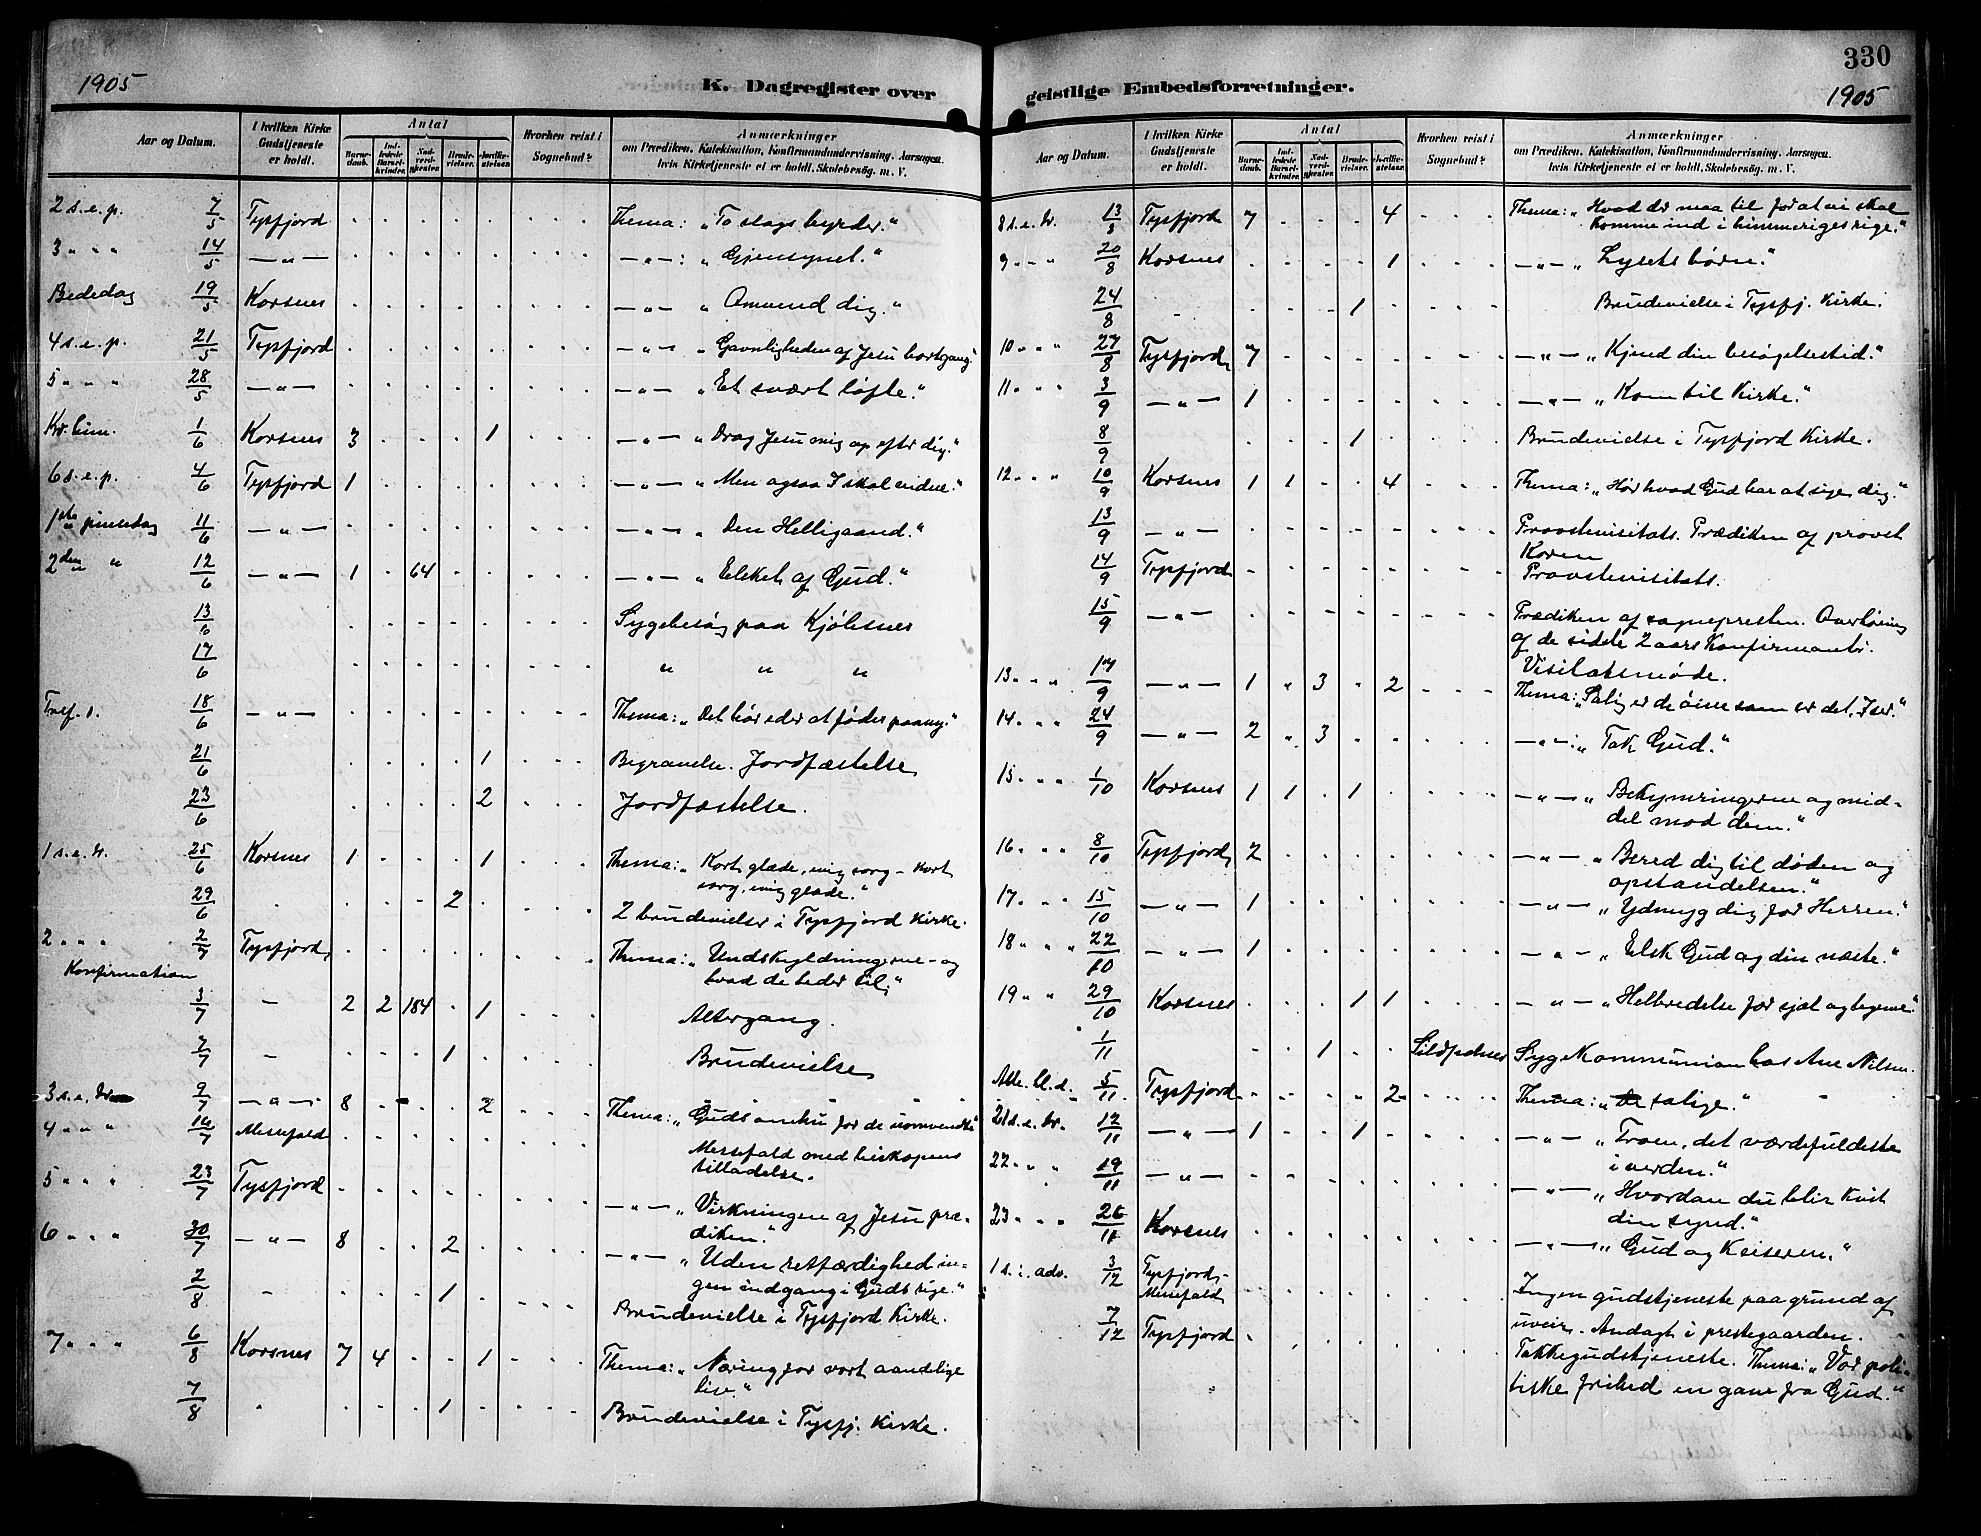 330
1905
K. Dagregister over
geistlige Embedsforretninger.
1905
Aar og Datum. I hvilken Kirke Gudstjeneste er holdt. Antal Barnedaab. Indledede Barselkvinder. Nadverdgjester. Brudevielser. Jordfæstelser. Hvorhen reist i Sognebud? Anmærkninger om Prædiken, Katekisation, Konfirmandundervisning, Aarsagen, hvis Kirketjeneste ei er holdt, Skolebesøg m. V.
2 s. e. p. 7/5 Tysfjord Thema: „To slags byrder.“
3 „ „ 14/5 — „ — — „ — : „Gjensynet.“
Bededag 19/5 Korsnes — „ — „Omvend dig.“
4 s. e. p. 21/5 Tysfjord — „ — „Gavnligheden af Jesu bortgang“
5 „ „ „ 28/5 — „ — — „ — „Et svært løfte.“
Kr. him. 1/6 Korsnes 3 1 — „ — „Drag Jesu mig op efter dig.“
6 s. e. p. 4/6 Tysfjord 1 — „ — „Men ogsaa I skal vidne.“
1ste pinsedag 11/6 — „ — — „ — „Den Helligaand.“
2den „ 12/6 — „ — 1 64 — „ — „Elsket af Gud.“
13/6 Sygebesøg paa Kjölesnes
17/6 „ „ „
Tref. s. 18/6 — „ — Thema: „Det bør eder at fødes paany.“
21/6 1 Begravelse. Jordfæstelse
23/6 2 Jordfæstelse.
1 s. e. tr. 25/6 Korsnes 1 1 Thema: „Kort glæde, evig sorg – Kort
sorg, evig glæde.“
29/6 2 2 brudevielser i Tysfjord Kirke.
2 „ „ „ 2/7 Tysfjord Thema: „Undskyldningerne – og
Konfirmation hvad de leder til.“
3/7 — 2 2 184 1 Altergang.
7/7 — 1 Brudevielse
3 s. e. tr. 9/7 — „ — 8 2 Thema: „Guds omhu for de uomvendte“
4 „ „ „ 16/7 Messefald Messefald med biskopens
tilladelse.
5 „ „ „ 23/7 Tysfjord — „ — „Virkningen af Jesu præ-
diken.“
6 „ „ „ 30/7 — „ — 8 2 — „ — „Uden retfærdighed in-
gen indgang i Guds rige.“
2/8 1 Brudevielse i Tysfjord Kirke.
7 „ „ „ 6/8 Korsnes 7 4 1 Thema: „Næring for vort aandelige
liv.“
7/8 1 Brudevielse i Tysfj. Kirke.
Aar og Datum. I hvilken Kirke Gudstjeneste er holdt. Antal Barnedaab. Indledede Barselkvinder. Nadverdgjester. Brudevielser. Jordfæstelser. Hvorhen reist i Sognebud? Anmærkninger om Prædiken, Katekisation, Konfirmandundervisning, Aarsagen, hvis Kirketjeneste ei er holdt, Skolebesøg m. V.
8 s. e. tr. 13/8 Tysfjord 7 4 Thema: „Hvad der maa til for at vi skal
komme ind i himmeriges rige.“
9 „ „ „ 20/8 Korsnes 1 — „ — „Lysets børn.“
24/8 1 Brudevielse i Tysfj. Kirke.
10 „ „ „ 27/8 Tysfjord 7 — „ — „Kjend din besøgelsestid.“
11 „ „ „ 3/9 — „ — 1 — „ — „Kom til Kirke.“
8/9 1 Brudevielse i Tysfjord Kirke.
12 „ „ „ 10/9 Korsnes 1 1 4 Thema: „Hør hvad Gud har at sige dig.“
13/9 — „ — Provstevisitats. Prædiken af provst
Koren
14/9 Tysfjord Provstevisitats.
15/9 — „ — Prædiken af sognepresten. Overhøring
af de sidste 2 aars Konfirmanter.
Visitatsmøde.
13 „ „ „ 17/9 — „ — 1 „ 3 „ 2 Thema: „Salig er de øine som ser det, I ser.“
14 „ „ „ 24/9 — „ — 2 „ 3 — „ — : „Tak Gud.“
15 „ „ „ 1/10 Korsnes 1 1 1 — „ — „Bekymringerne og mid-
del mod dem.“
16 „ „ 8/10 Tysfjord 2 — „ — „Bered dig til døden og
opstandelsen.“
17 „ „ „ 15/10 — „ — 1 — „ — „Ydmyg dig for Herren.“
18 „ „ „ 22/10 — „ — 1 — „ — „Elsk Gud og din næste.“
19 „ „ 29/10 Korsnes 1 1 — „ — „Helbredelse for sjæl og legeme“
1/11 1 Syg Kommunion hos Ane Nilsen.
Alle. hl. d. 5/11 Tysfjord 2 Thema: „De salige.“
21 s. e. tr. 12/11 — „ — 1 1 — „ — „Troen, det værdefuldeste
i verden.“
22 „ „ „ 19/11 — „ — — „ — „Hvordan du blir kvit
din synd.“
23 „ „ „ 26/11 Korsnes — „ — „Gud og Keiseren.“
1 s. i. adv. 3/12 Tysfjord,
Messefald Ingen gudstjeneste paa grund af
uveir. Andagt i prestegaarden.
7/12 Tysfjord Takkegudstjeneste. Thema: „Vor poli-
tiske frihed en gave fra Gud.“